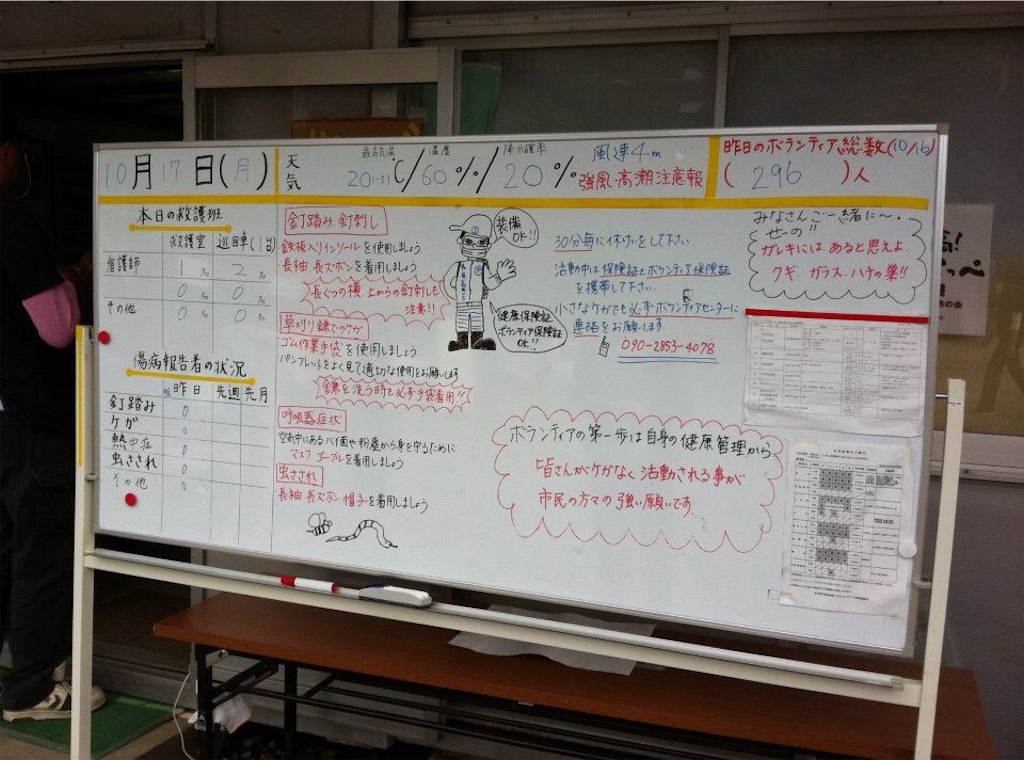 10月17日(月)
天気
最高気温 湿度 降水確率
20(-3)℃/60%/20%
風速4m
強風・高潮注意報
昨日のボランティア総数(10/16)
(296)人
本日の救護班
救護室 巡回車(1台)
看護師 1名 2名
0名 0名
その他 0名 0名
傷病報告者の状況
昨日 先週 先月
釘踏み 0
ケガ 0
熱中症 0
虫さされ 0
その他 0
釘踏み 釘刺し
鉄板入りインソールを使用しましょう
長袖 長ズボンを着用しましょう
長ぐつの横 上からの釘刺しも
注意!!
草刈り鎌でのケガ
ゴム作業手袋を使用しましょう
パンフレットをよく見て適切な使用をお願いします
鎌を洗う時も必ず手袋着用!!
呼吸器症状
空気中にあるバイ菌や粉塵から身を守るために
マスク ゴーグルを着用しましょう
虫さされ
長袖 長ズボン 帽子を着用しましょう
装備
OK!!
健康保険証
ボランティア保険証
OK!!
30分毎に休けいをして下さい
活動中は保険証とボランティア保険証
を携帯して下さい
小さなケガでも必ずボランティアセンターに
連絡をお願いします
090-2853-4078
みなさんご一緒に〜・
せーの!!
ガレキには あると思えよ
クギ ガラス ハチの巣!!
ボランティアの第一歩は自身の健康管理から
皆さんがケガなく活動される事が
市民の方々の強い願いです